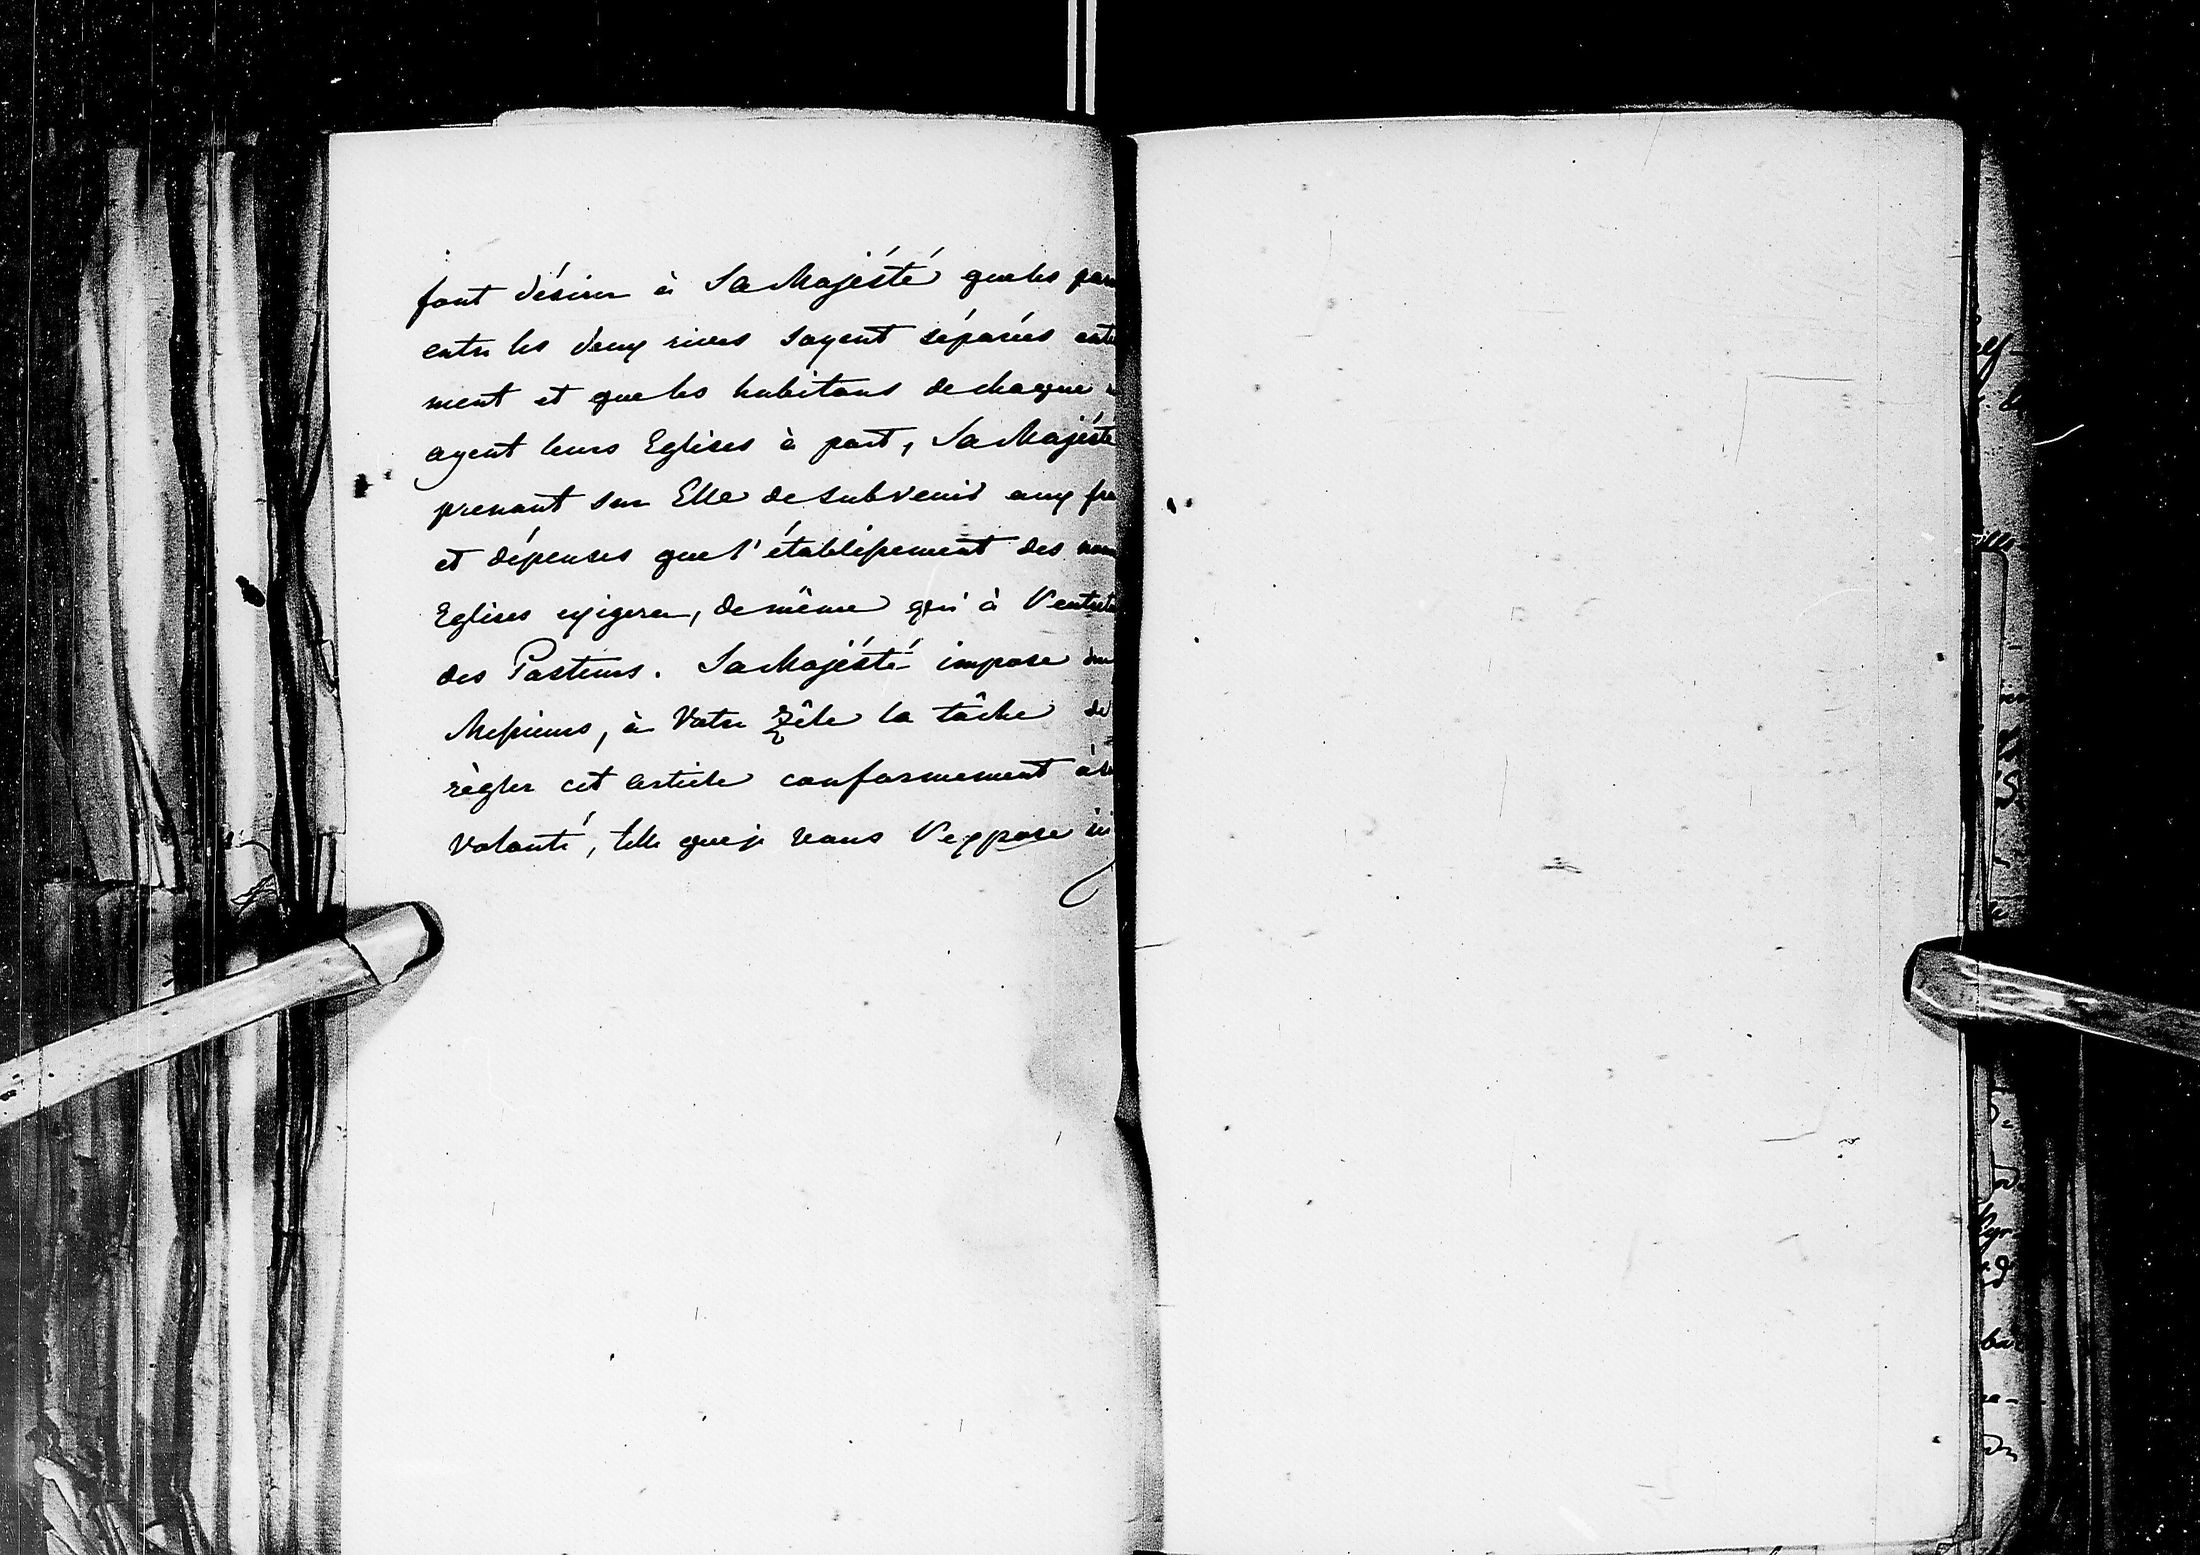 font désirer à Sa Majésté que les par
entre les deux rives soyent séparées enti
ment et que les habitans de chaque
ayent leurs Eglises à part, Sa Majésté
prenant sur Elle de subvenir aux fra
et dépenses que l'établissement des nou
Eglises exigera, de même qu'à l'entreti
des Pasteurs. Sa Majésté impose don
Messieurs, à Votre zêle la tâche de
règler cet article conformement à la
Volonté, telle que je vous l'expose ici